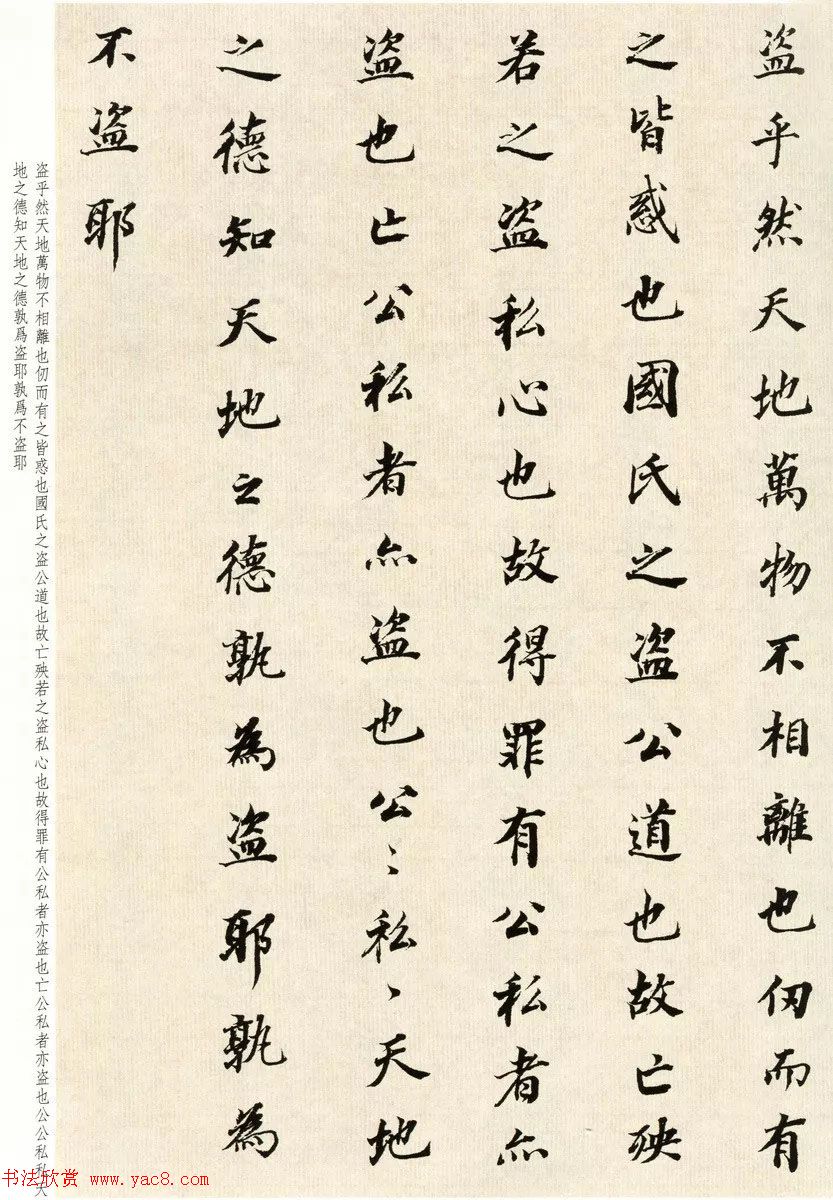 盗乎然天地萬物不相離也仞而有
之皆惑也國氏之盗公道也故亡殃
若之盗私心也故得罪有公私者亦
盗也亡公私者亦盗也公〻私〻天地
之德知天地之德孰為盗耶孰為
不盗耶
盗乎然天地萬物不相離也仞而有之皆惑也國氏之盗公道也故亡殃若之盗私心也故得罪有公私者亦盗也亡公私者亦盗也公公私私天
地之德知天地之德孰爲盗耶孰爲不盗耶
书法欣赏 www.yac8.com